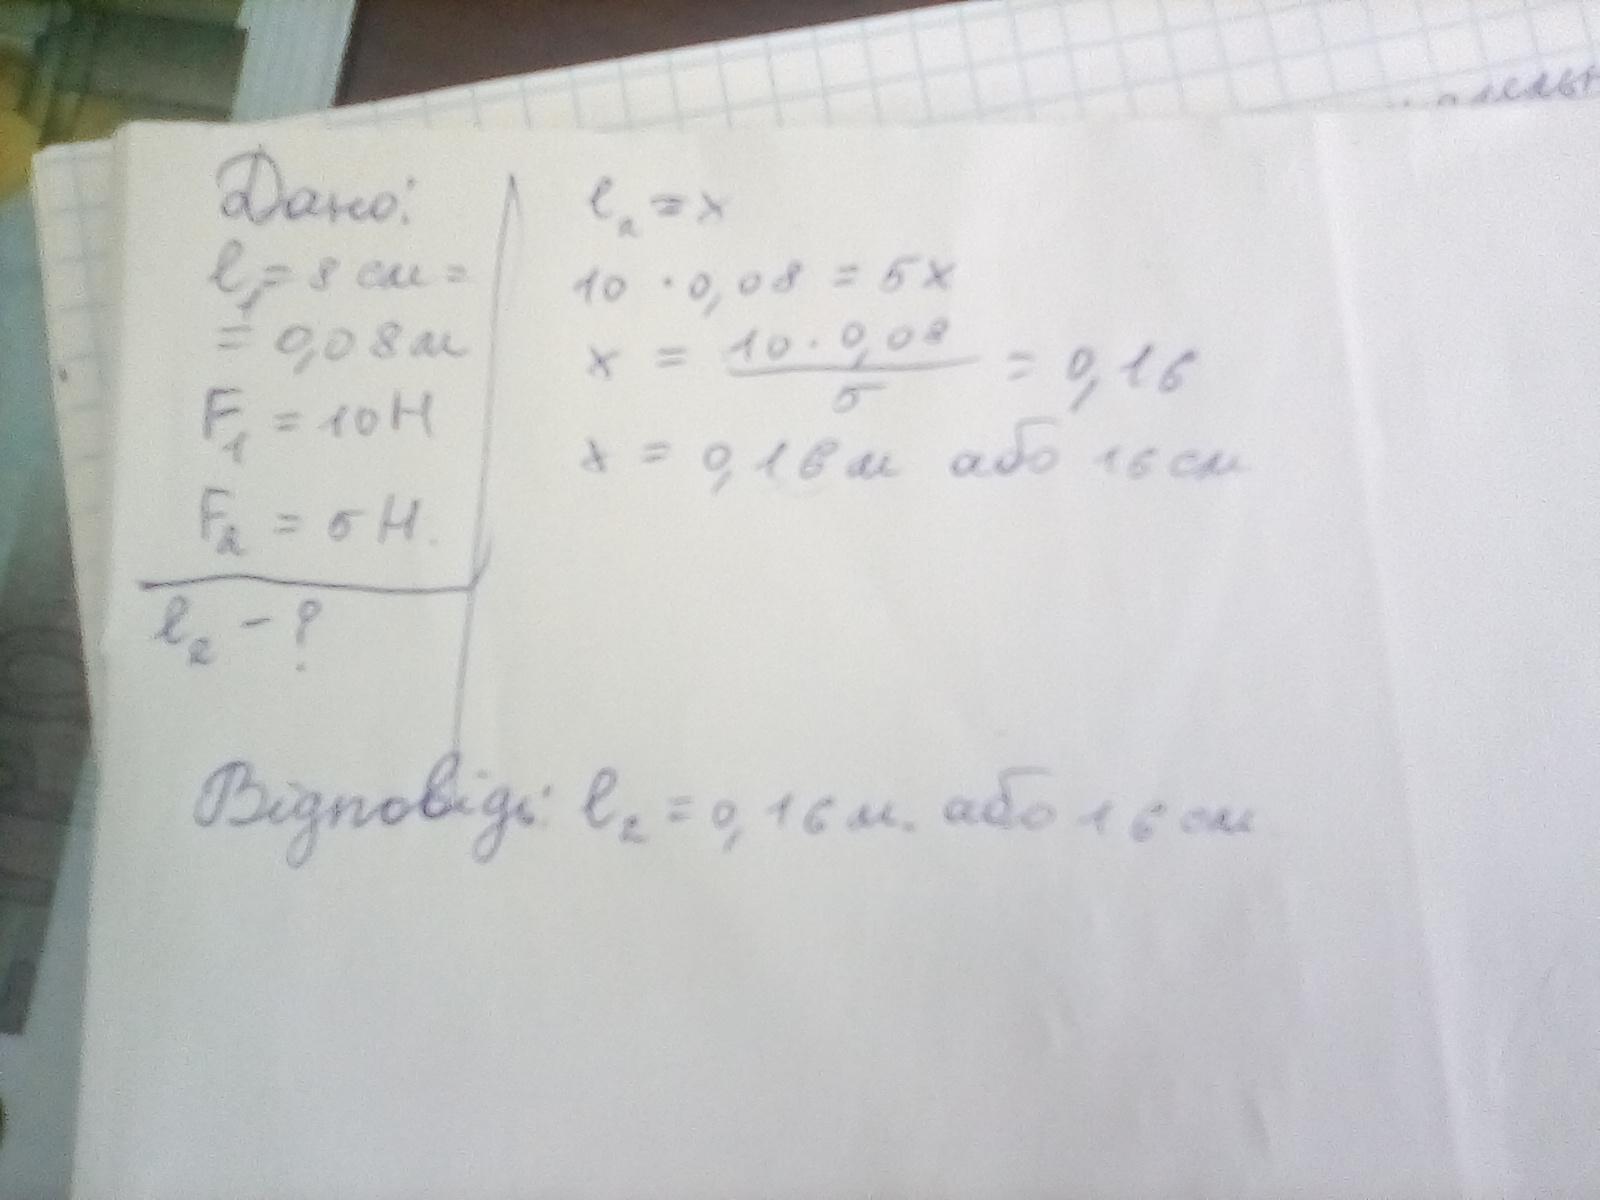 Дано:
l₁ = 8 см =
= 0,08 м
F₁ = 10 Н
F₂ = 5 Н.
l₂ - ?
l₂ = x
10 · 0,08 = 5x
x = \frac{10 · 0,08}{5} = 0,16
x = 0,16 м або 16 см
Відповідь: l₂ = 0,16 м. або 16 см